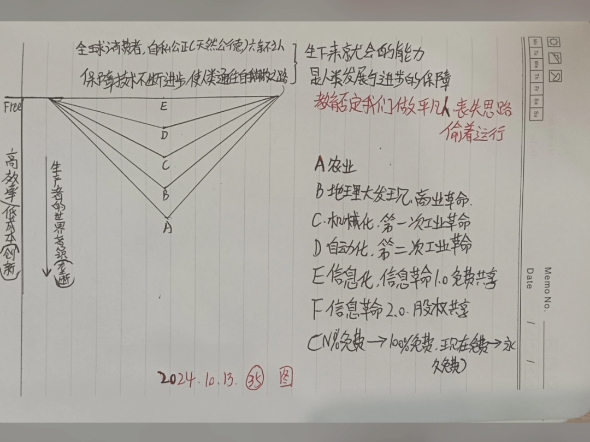 全球消费者,自私公正(天然公德)六亲不认
保障技术不断进步使人类通往自由之路
生下来就会的能力
是人类发展与进步的保障
教育否定我们做平凡人 丧失思路
偷着运行
Free
E
D
C
B
A
高效率/低成本(创新)
生产者的世界
A 农业
B 地理大发现 商业革命.
C. 机械化. 第一次工业革命
D 自动化, 第二次工业革命
E 信息化, 信息革命1.0 免费共享
F 信息革命2.0. 股权共享
(N%免费→100%免费. 现在免费→永
久免费)
2024.10.13. 35 图
Memo No.
Date / /